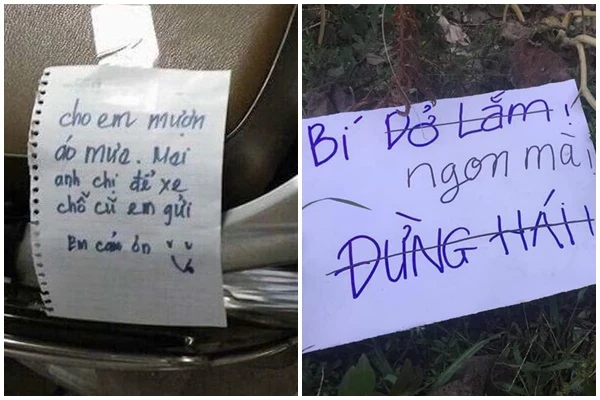 cho em mượn
áo mưa. Mai
anh chị để xe
chỗ cũ em gửi
Em cảm ơn
Bí Dở Lắm!
ngon mà!
ĐỪNG HÁI!